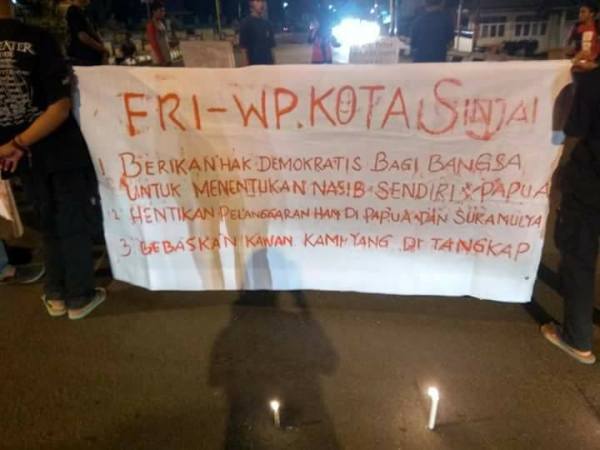 EATER
FRI-WP. KOTA SINJAI
1 BERIKAN HAK DEMOKRATIS BAGI BANGSA
UNTUK MENENTUKAN NASIB SENDIRI PAPUA
2 HENTIKAN PELANGGARAN HAM DI PAPUA DAN SUKAMULYA
3 BEBASKAN KAWAN KAMI YANG DI TANGKAP